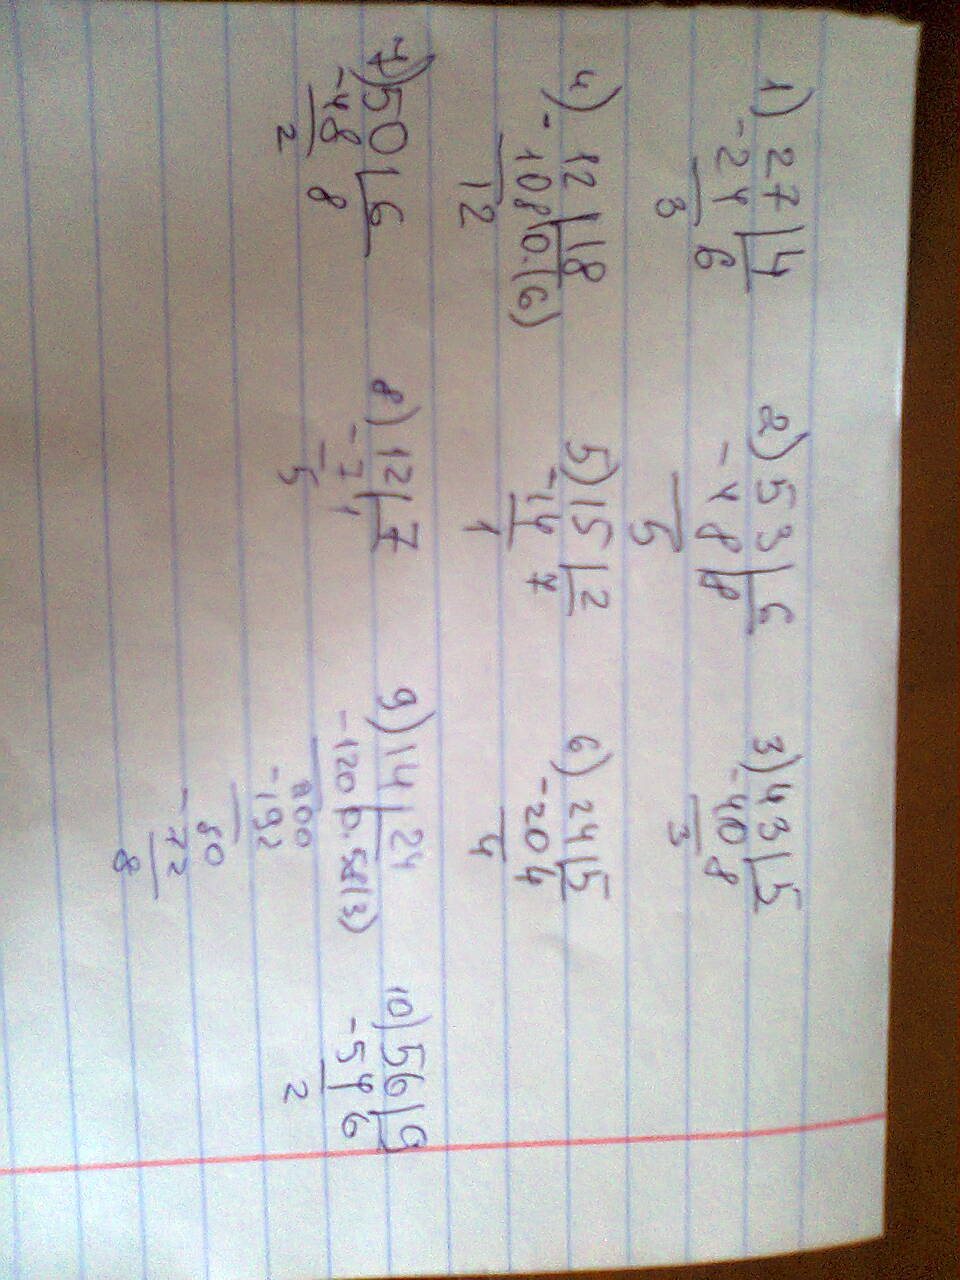 1) 27|4 2) 53|6 3) 43|5
-24 6 -48 8 -40 8
3 5 3
4) 12|18 5) 15|2 6) 24|5
-108 0.(6) -14 7 -20 4
12 1 4
7) 50|6 8) 12|7 9) 14|24 10) 56|9
-48 8 -7 1 -120 0.58(3) -54 6
2 5 200 2
-192
80
-72
8